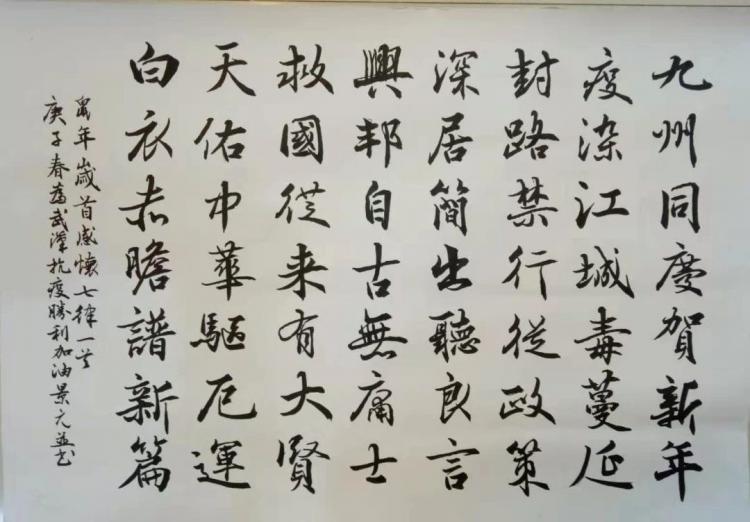 九州同慶賀新年
疫染江城毒蔓延
封路禁行從政策
深居簡出聽良言
興邦自古無庸士
救國從来有大賢
天佑中華驅厄運
白衣赤膽譜新篇
鼠年歲首感懷七律一首
庚子春為武漢抗疫勝利加油景元並書